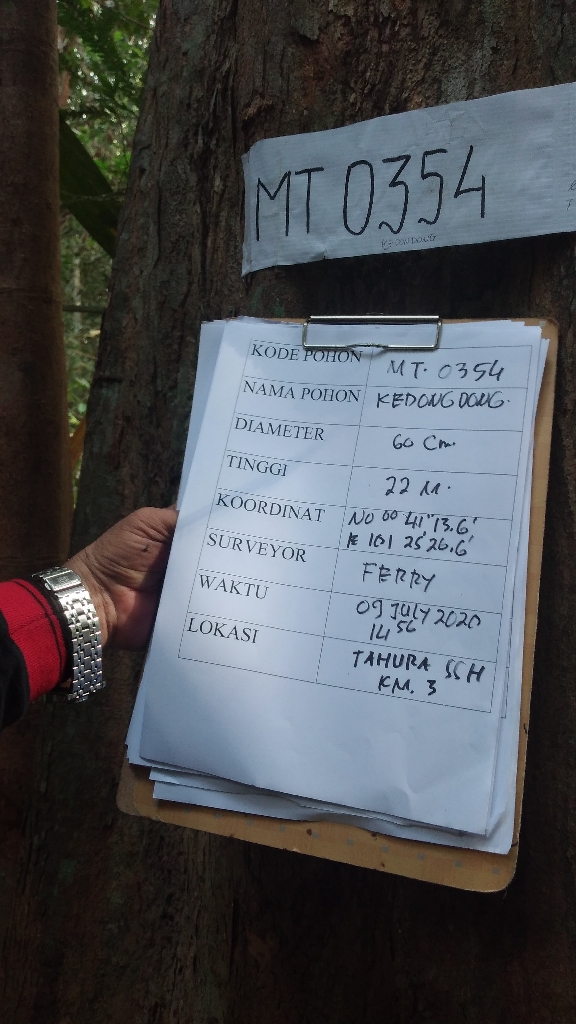 MT 0354
KEDONDONG
KODE POHON MT. 0354
NAMA POHON KEDONGDONG.
DIAMETER 60 Cm.
TINGGI 22 M.
KOORDINAT N0 00 41" 13.6'
E 101 25' 26.6'
SURVEYOR FERRY
WAKTU 09 JULY 2020
14 56
LOKASI TAHURA SSH
KM. 3